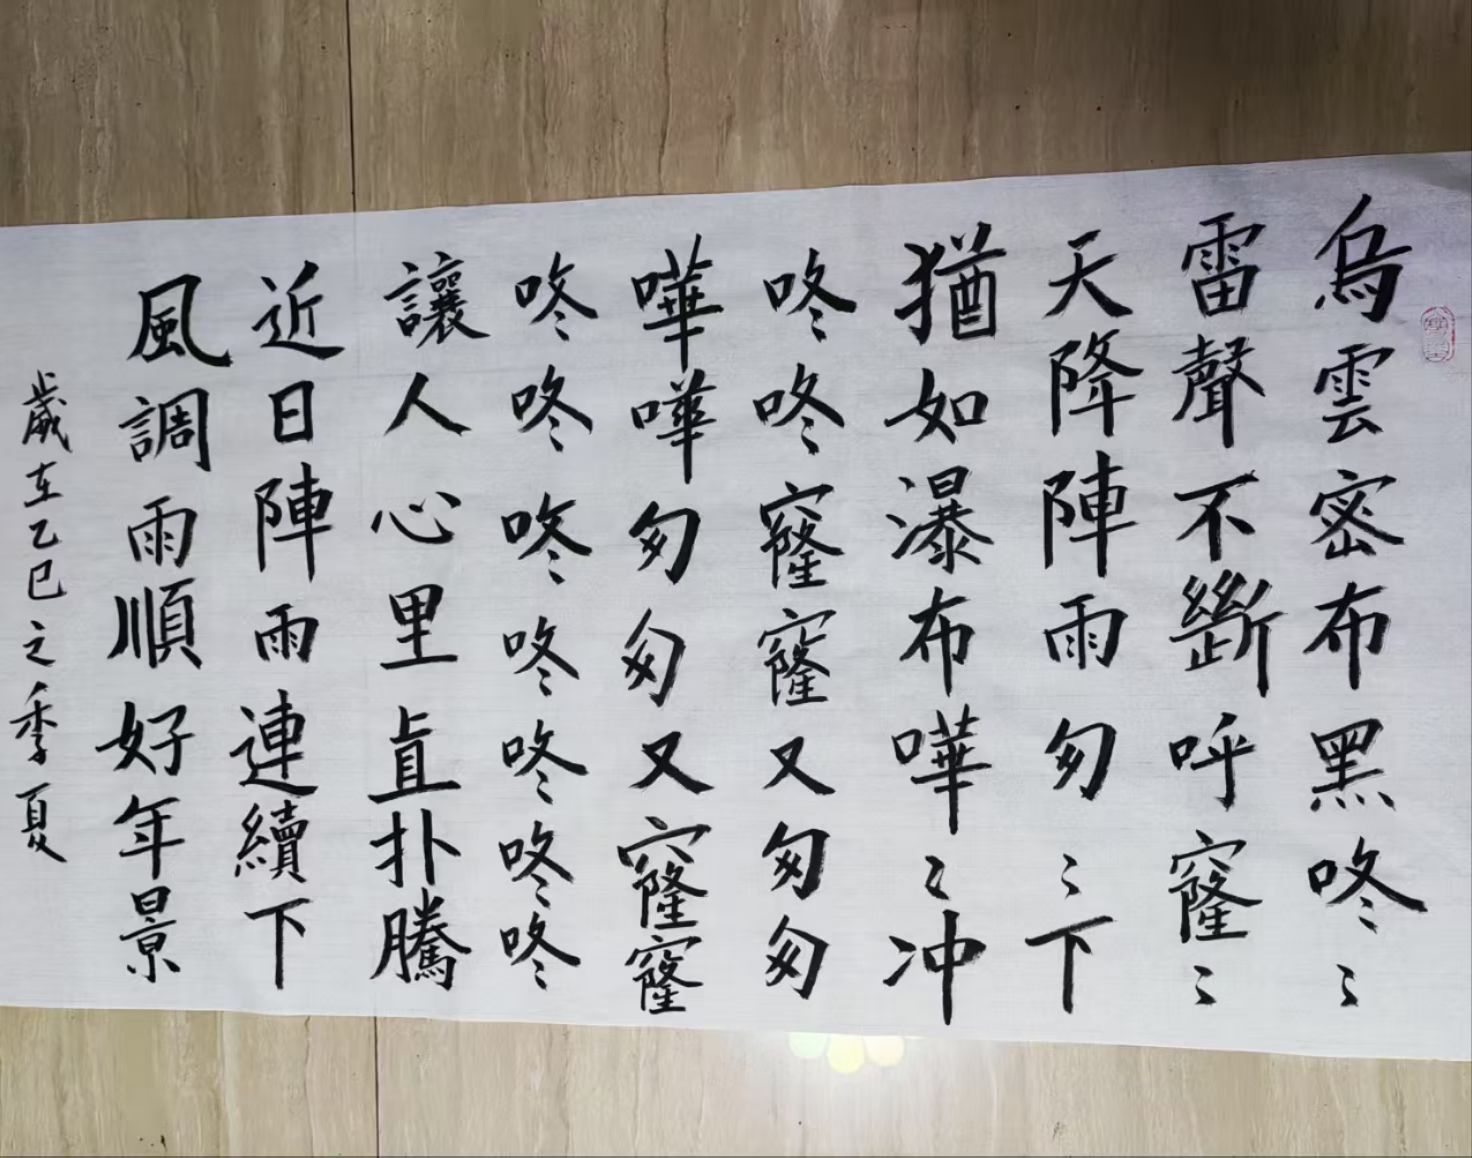 烏雲密布黑咚〻
雷聲不斷呼窿〻
天降陣雨匆〻下
猶如瀑布嘩〻冲
咚咚窿窿又匆匆
嘩嘩匆匆又窿窿
咚咚咚咚咚咚咚
讓人心里直扑騰
近日陣雨連續下
風調雨順好年景
歲在乙巳之季夏